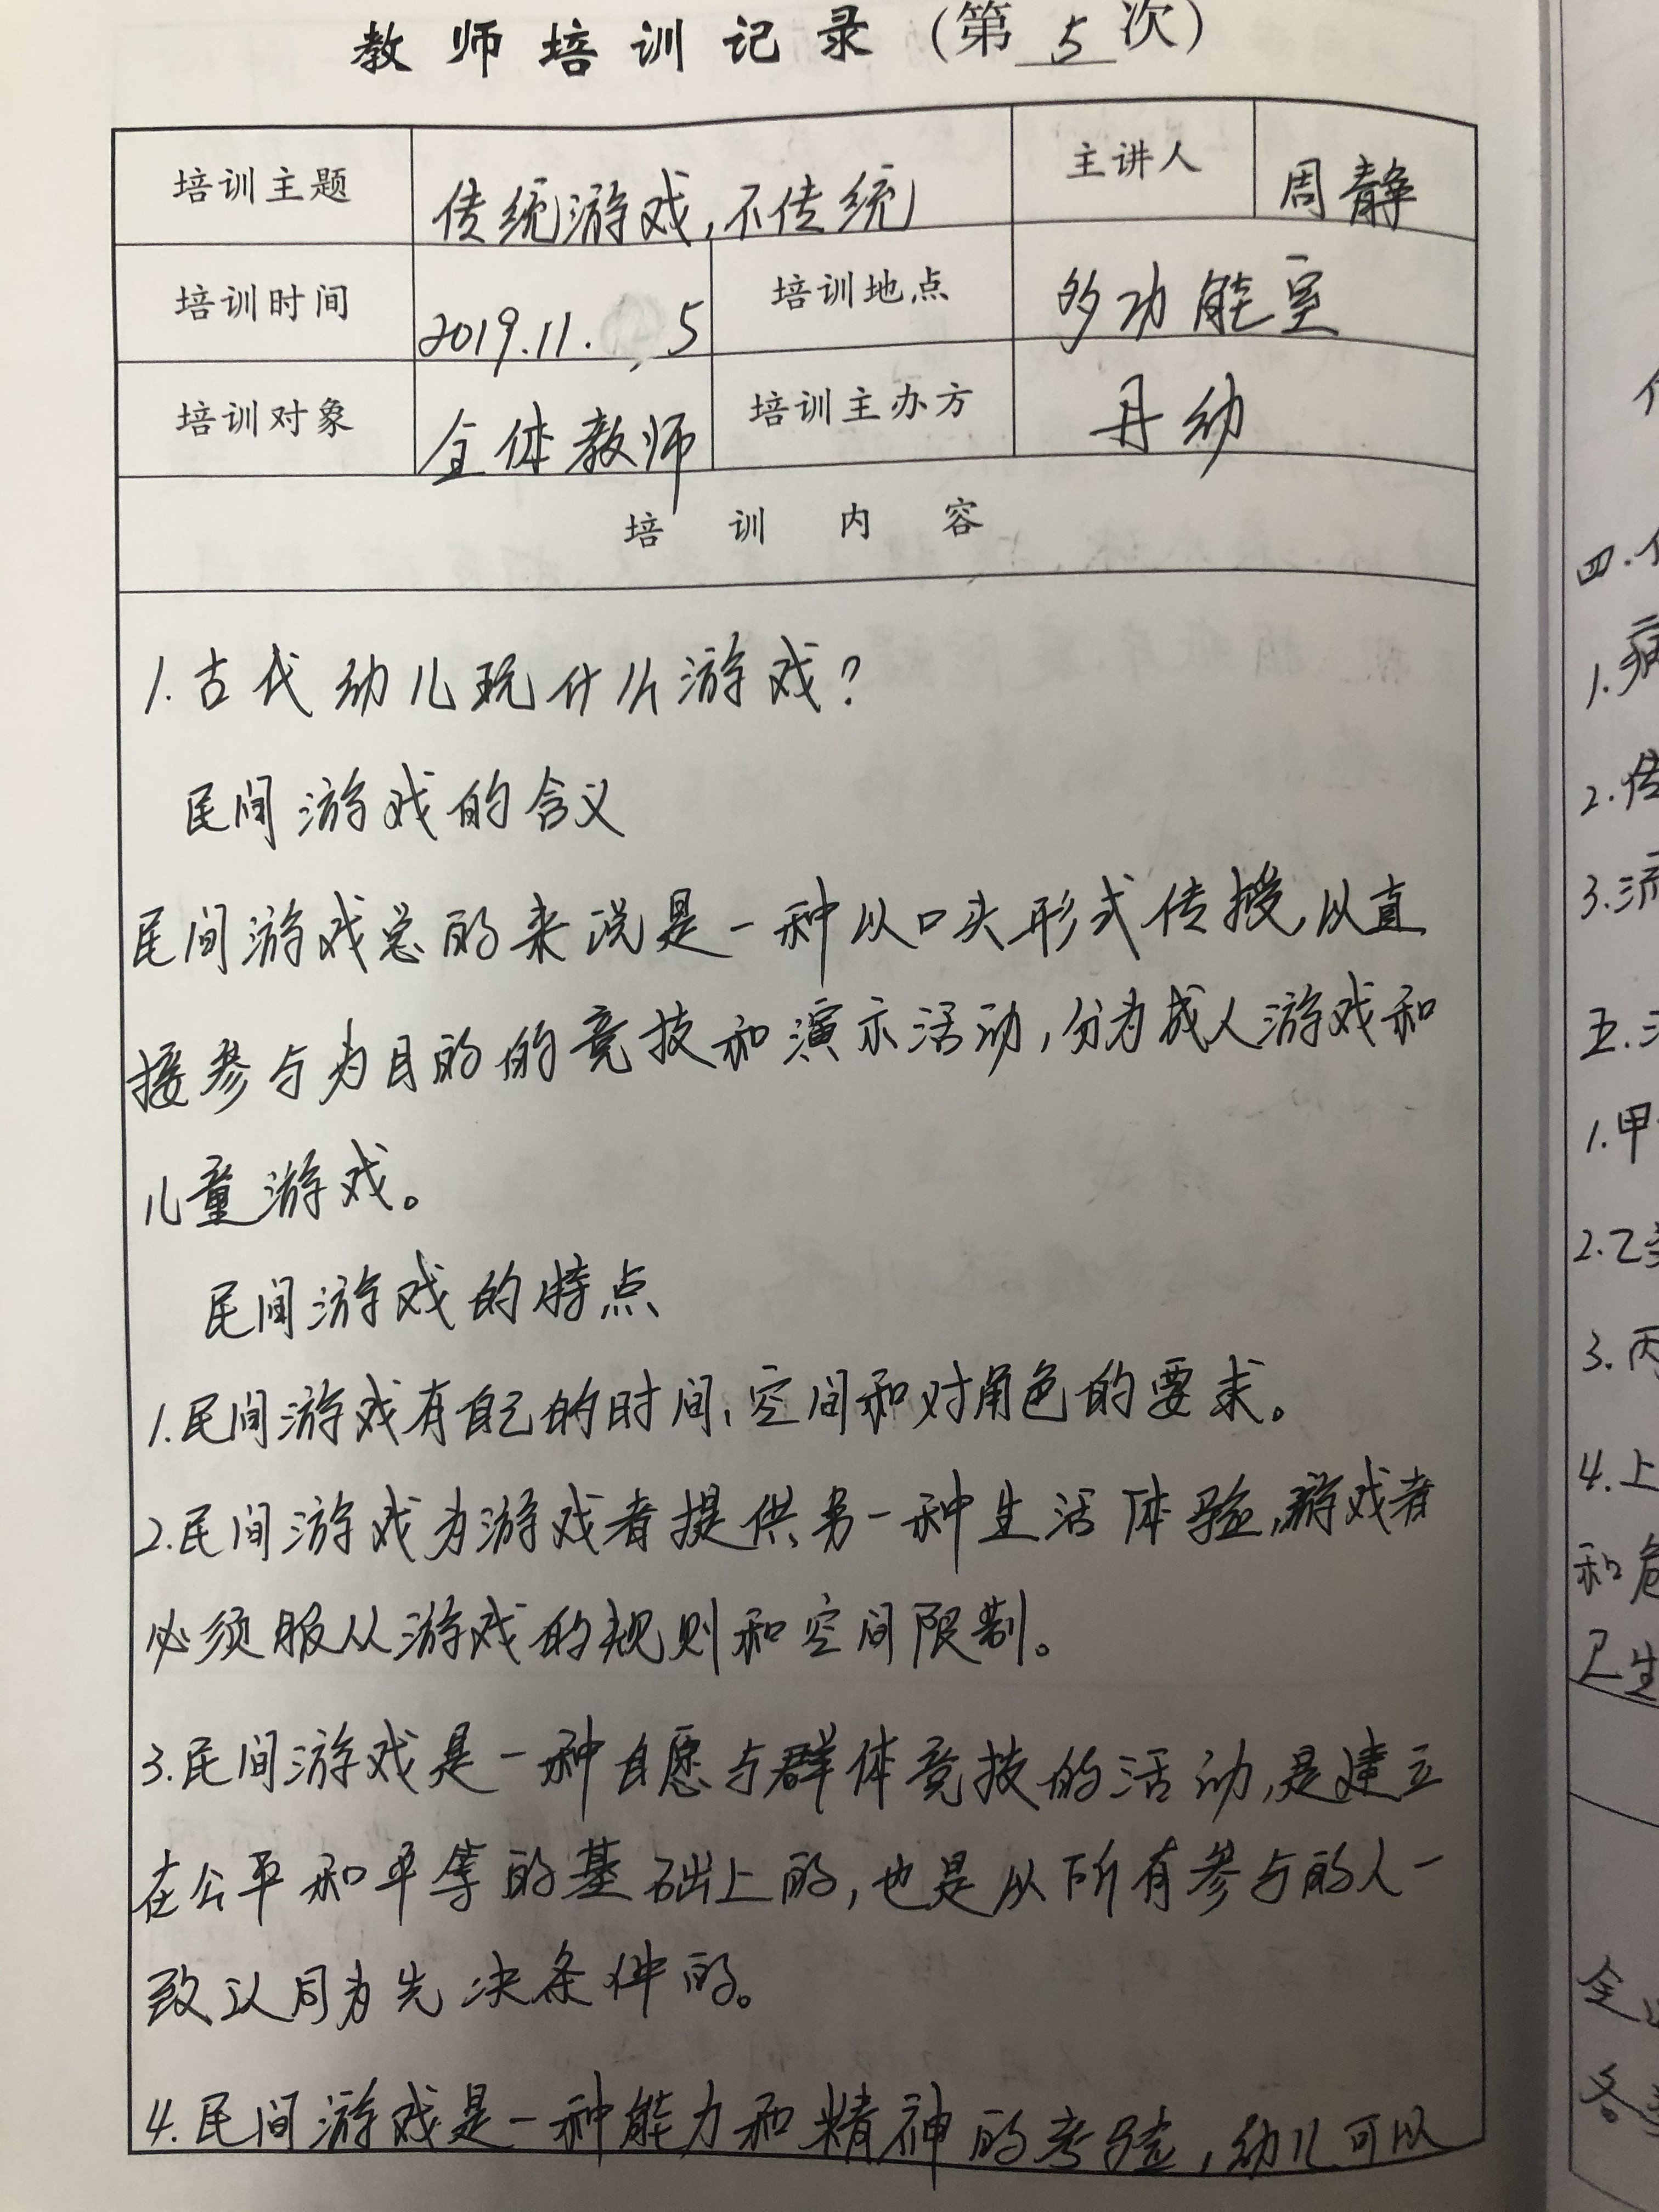 教师培训记录（第5次）
培训主题 传统游戏，不传统 主讲人 周静
培训时间 2019.11. 5 培训地点 多功能室
培训对象 全体教师 培训主办方 丹幼
培训内容
1.古代幼儿玩什么游戏？
民间游戏的含义
民间游戏总的来说是一种以口头形式传授，以直
接参与为目的的竞技和演示活动，分为成人游戏和
儿童游戏。
民间游戏的特点
1.民间游戏有自己的时间、空间和对角色的要求。
2.民间游戏为游戏者提供另一种生活体验，游戏者
必须服从游戏的规则和空间限制。
3.民间游戏是一种自愿与群体竞技的活动，是建立
在公平和平等的基础上的，也是以所有参与的人一
致认同为先决条件的。
4.民间游戏是一种能力和精神的考验，幼儿可以
四.
1.病
2.传
3.流
五.
1.甲
2.乙类
3.丙
4.上
和危
卫生
全
冬